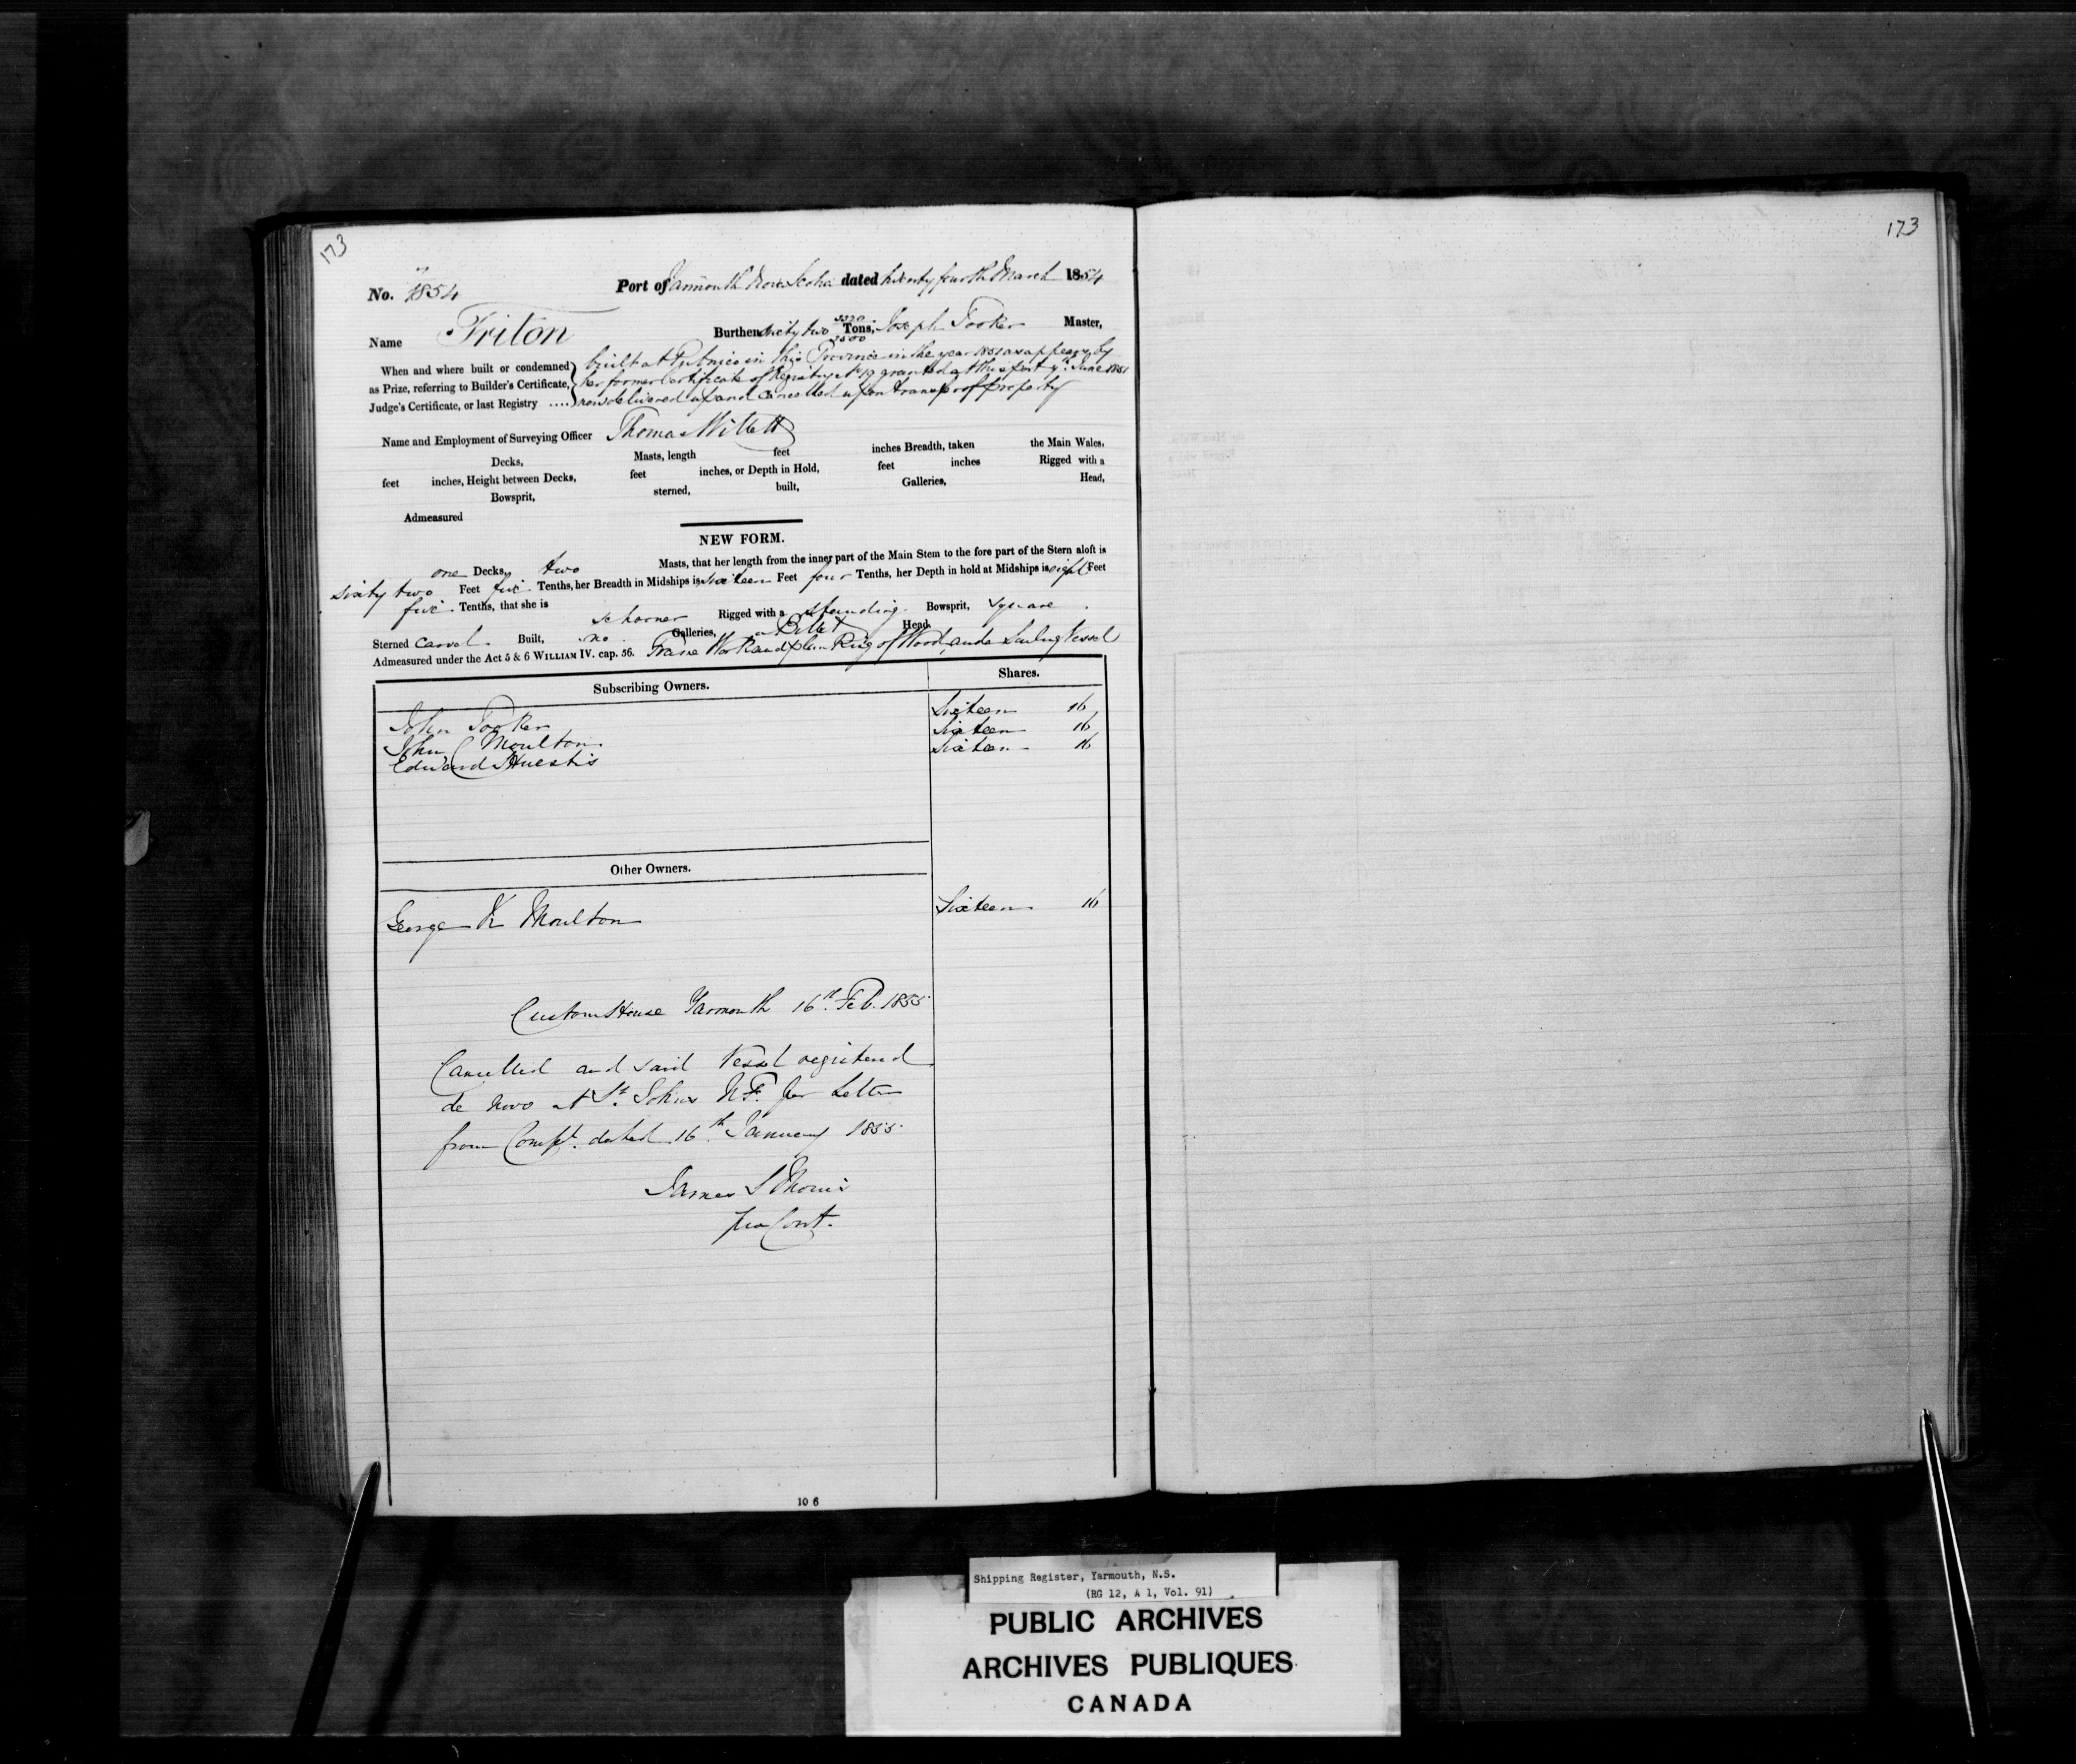 173
173
No. 7/1854 Port of Yarmouth Nova Scotia dated twenty fourth March 1854
Name Triton Burthen sixty two 3320/3500 Tons, Joseph Tooker Master,
When and where built or condemned as Prize, referring to Builder's Certificate, Judge's Certificate, or last Registry ....
built at Pubnico in this Province in the year 1851 as appears by
her former Certificate of Registry No 19 granted at this port 9th June 1851
now delivered up and cancelled upon transfer of property
Name and Employment of Surveying Officer Thomas Willett
Decks, Masts, length feet inches Breadth, taken the Main Wales,
feet inches, Height between Decks, feet inches, or Depth in Hold, feet inches Rigged with a
Bowsprit, sterned, built, Galleries, Head,
Admeasured
NEW FORM.
one Decks, two Masts, that her length from the inner part of the Main Stem to the fore part of the Stern aloft is
sixty two Feet five Tenths, her Breadth in Midships is sixteen Feet four Tenths, her Depth in hold at Midships is eight Feet
five Tenths, that she is schooner Rigged with a standing Bowsprit, square
Sterned carvel Built, no Galleries, a Billet Head
Admeasured under the Act 5 & 6 WILLIAM IV. cap. 56. Frame Work and plan Ring of Wood, and a Sailing Vessel
Subscribing Owners. Shares.
John Tooker Sixteen 16
John C Moulton Sixteen 16
Edward Huestis Sixteen 16
Other Owners.
George K Moulton Sixteen 16
Custom House Yarmouth 16th Feb. 1855
Cancelled and said Vessel registered
de novo at St. Johns N.F. per Letter
from Compt. dated 16th January 1855
James S Morris
pro Cont.
10 6
Shipping Register, Yarmouth, N.S.
(RG 12, A 1, Vol. 91)
PUBLIC ARCHIVES
ARCHIVES PUBLIQUES
CANADA